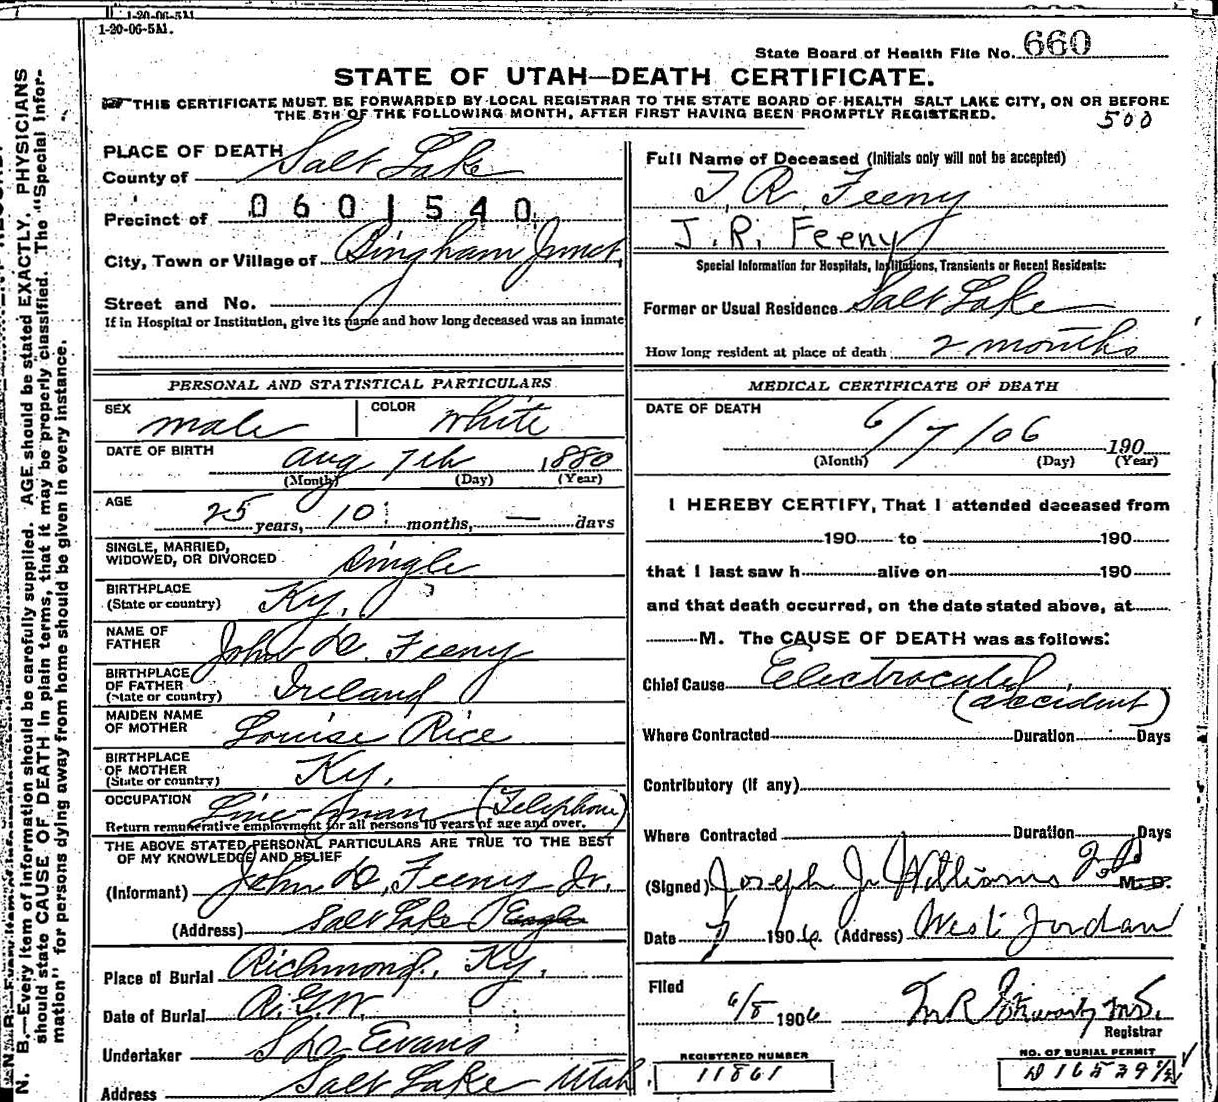 1-20-06-5M.
State Board of Health File No. 660
STATE OF UTAH—DEATH CERTIFICATE.
THIS CERTIFICATE MUST BE FORWARDED BY LOCAL REGISTRAR TO THE STATE BOARD OF HEALTH SALT LAKE CITY, ON OR BEFORE
THE 5TH OF THE FOLLOWING MONTH, AFTER FIRST HAVING BEEN PROMPTLY REGISTERED.
500
PLACE OF DEATH
County of Salt Lake
Precinct of 0601540
City, Town or Village of Bingham Junct
Street and No.
If in Hospital or Institution, give its name and how long deceased was an inmate
Full Name of Deceased (Initials only will not be accepted)
J. R. Feeny
J.R. Feeny
Special Information for Hospitals, Institutions, Transients or Recent Residents:
Former or Usual Residence Salt Lake
How long resident at place of death 2 months
PERSONAL AND STATISTICAL PARTICULARS
SEX male COLOR white
DATE OF BIRTH Aug 7th 1880
(Month) (Day) (Year)
AGE 25 years, 10 months, — days
SINGLE, MARRIED,
WIDOWED, OR DIVORCED Single
BIRTHPLACE
(State or country) Ky.
NAME OF
FATHER John D. Feeny
BIRTHPLACE
OF FATHER
(State or country) Ireland
MAIDEN NAME
OF MOTHER Louise Rice
BIRTHPLACE
OF MOTHER
(State or country) Ky.
OCCUPATION Line-man (Telephone)
Return remunerative employment for all persons 10 years of age and over.
THE ABOVE STATED PERSONAL PARTICULARS ARE TRUE TO THE BEST
OF MY KNOWLEDGE AND BELIEF
(Informant) John D. Feeny Jr.
(Address) Salt Lake
Place of Burial Richmond, Ky.
Date of Burial R.G.W.
Undertaker S D Evans
Address Salt Lake Utah
MEDICAL CERTIFICATE OF DEATH
DATE OF DEATH 6/7/06 190
(Month) (Day) (Year)
I HEREBY CERTIFY, That I attended deceased from
190 to 190
that I last saw h alive on 190
and that death occurred, on the date stated above, at
M. The CAUSE OF DEATH was as follows:
Chief Cause Electrocuted
(accident)
Where Contracted Duration Days
Contributory (if any)
Where Contracted Duration Days
(Signed) Joseph J. Williams M.D.
Date 7 1906. (Address) West Jordan
Filed
6/8 1906
Registrar
REGISTERED NUMBER
11861
NO. OF BURIAL PERMIT
N. B.—Every item of information should be carefully supplied. AGE should be stated EXACTLY. PHYSICIANS
should state CAUSE OF DEATH in plain terms, that it may be properly classified. The "Special Infor-
mation" for persons dying away from home should be given in every instance.